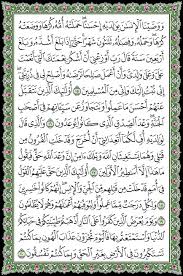 وَوَصَّيْنَا ٱلْإِنسَٰنَ بِوَٰلِدَيْهِ إِحْسَٰنًا ۖ حَمَلَتْهُ أُمُّهُۥ كُرْهًا وَوَضَعَتْهُ
كُرْهًا ۖ وَحَمْلُهُۥ وَفِصَٰلُهُۥ ثَلَٰثُونَ شَهْرًا ۚ حَتَّىٰٓ إِذَا بَلَغَ أَشُدَّهُۥ وَبَلَغَ
أَرْبَعِينَ سَنَةً قَالَ رَبِّ أَوْزِعْنِىٓ أَنْ أَشْكُرَ نِعْمَتَكَ ٱلَّتِىٓ أَنْعَمْتَ
عَلَىَّ وَعَلَىٰ وَٰلِدَىَّ وَأَنْ أَعْمَلَ صَٰلِحًا تَرْضَىٰهُ وَأَصْلِحْ لِى فِى
ذُرِّيَّتِىٓ ۖ إِنِّى تُبْتُ إِلَيْكَ وَإِنِّى مِنَ ٱلْمُسْلِمِينَ ١٥ أُو۟لَٰٓئِكَ ٱلَّذِينَ نَتَقَبَّلُ
عَنْهُمْ أَحْسَنَ مَا عَمِلُوا۟ وَنَتَجَاوَزُ عَن سَيِّـَٔاتِهِمْ فِىٓ أَصْحَٰبِ
ٱلْجَنَّةِ ۖ وَعْدَ ٱلصِّدْقِ ٱلَّذِى كَانُوا۟ يُوعَدُونَ ١٦ وَٱلَّذِى قَالَ
لِوَٰلِدَيْهِ أُفٍّ لَّكُمَآ أَتَعِدَانِنِىٓ أَنْ أُخْرَجَ وَقَدْ خَلَتِ ٱلْقُرُونُ مِن
قَبْلِى وَهُمَا يَسْتَغِيثَانِ ٱللَّهَ وَيْلَكَ ءَامِنْ إِنَّ وَعْدَ ٱللَّهِ حَقٌّ فَيَقُولُ
مَا هَٰذَآ إِلَّآ أَسَٰطِيرُ ٱلْأَوَّلِينَ ١٧ أُو۟لَٰٓئِكَ ٱلَّذِينَ حَقَّ عَلَيْهِمُ ٱلْقَوْلُ
فِىٓ أُمَمٍ قَدْ خَلَتْ مِن قَبْلِهِم مِّنَ ٱلْجِنِّ وَٱلْإِنسِ ۖ إِنَّهُمْ كَانُوا۟ خَٰسِرِينَ ١٨
وَلِكُلٍّ دَرَجَٰتٌ مِّمَّا عَمِلُوا۟ ۖ وَلِيُوَفِّيَهُمْ أَعْمَٰلَهُمْ وَهُمْ لَا يُظْلَمُونَ ١٩
وَيَوْمَ يُعْرَضُ ٱلَّذِينَ كَفَرُوا۟ عَلَى ٱلنَّارِ أَذْهَبْتُمْ طَيِّبَٰتِكُمْ فِى حَيَاتِكُمُ
ٱلدُّنْيَا وَٱسْتَمْتَعْتُم بِهَا فَٱلْيَوْمَ تُجْزَوْنَ عَذَابَ ٱلْهُونِ بِمَا كُنتُمْ
تَسْتَكْبِرُونَ فِى ٱلْأَرْضِ بِغَيْرِ ٱلْحَقِّ وَبِمَا كُنتُمْ تَفْسُقُونَ ٢٠